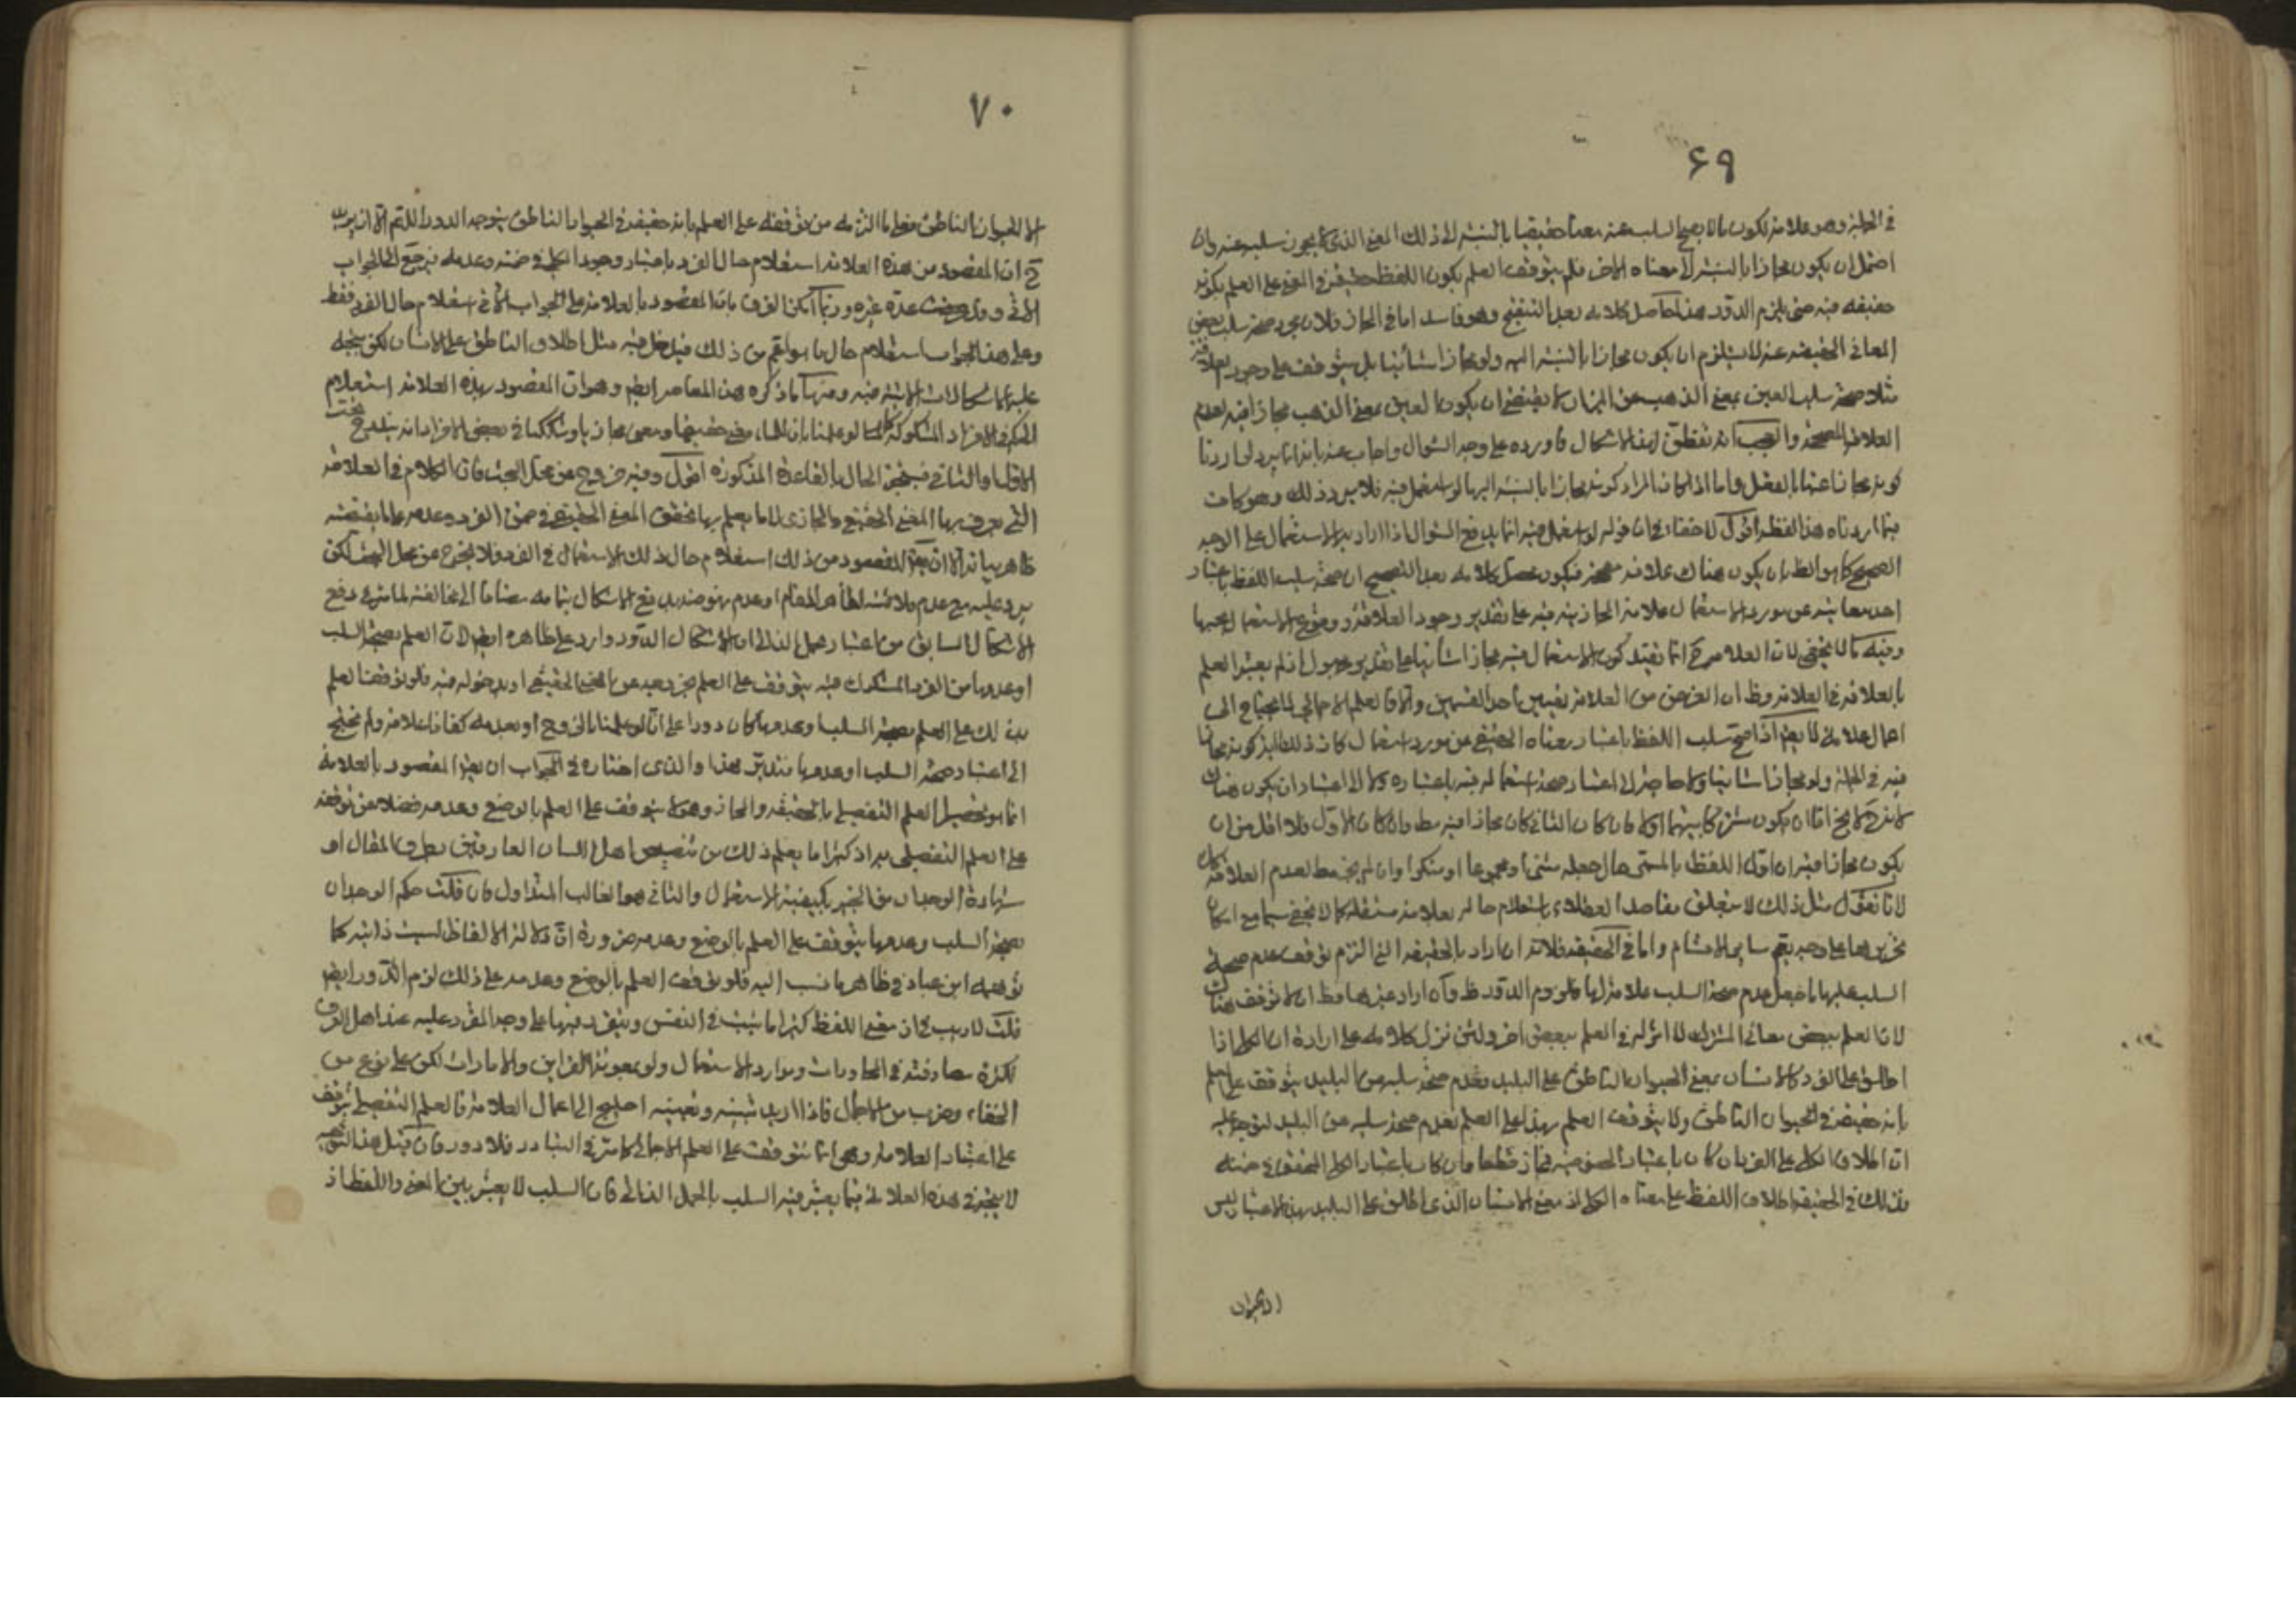 ۶۹
في الجملة وهو علامة لكون ما لا يصح السلب عنه معنا حقيقيا بالنسبة الى ذلك المعنى الذي لا يجوز سلبه عنه وان
احتمل ان يكون مجازا بالنسبة الى معناه الاخر فلم يتوقف العلم بكون اللفظ حقيقة في المعنى على العلم بكونه
حقيقة فيه حتى يلزم الدور هذا حاصل كلامه بعد التنقيح وهو فاسد اما في المجاز فلان مجرد صحة سلب بعض
المعاني الحقيقية عنه لا يستلزم ان يكون مجازا بالنسبة اليه ولو مجازا شأنيا بل يتوقف على وجود العلاقة
مثلا صحة سلب العين بمعنى الذهب عن الميزان لا يقتضي ان يكون العين بمعنى الذهب مجازا فيه لعدم
العلاقة المصححة والعجب انه تفطن لهذا الاشكال فاورده على وجه السؤال واجاب عنه بانه انما يرد لو اردنا
كونه مجازا عنها بالفعل واما اذا كان المراد كونه مجازا بالنسبة اليها لو استعمل فيه فلا يرد ذلك وهو كاف
فيما اردناه هذا لفظه اقول لا خفاء في ان قوله لو استعمل فيه انما يدفع السؤال اذا اراد به الاستعمال على الوجه
الصحيح كما هو الظ بان يكون هناك علاقة مصححة فيكون محصل كلامه بعد التصحيح ان صحة سلب اللفظ باعتبار
احد معانيه عن مورد الاستعمال علامة المجازية فيه على تقدير وجود العلاقة ووقوع الاستعمال بحسبها
وفيه ما لا يخفى لان العلامة ح انما يفيد كون الاستعمال فيه مجازا شأنيا على تقدير مجهول اذ لم يعتبر العلم
بالعلاقة في العلامة وظ ان الغرض من العلامة تعيين احد القسمين والا فالعلم الاجمالي لا يحتاج الى
اعمال علامة لا يقه اذا صح سلب اللفظ باعتبار معناه الحقيقي عن مورد استعمال كان ذلك آية كونه مجازا
فيه في الجملة ولو مجازا شانيا ولا حاجة الى اعتبار صحة استعماله فيه باعتباره ولا الى اعتبار ان يكون هناك
لانه ح لا يخ اما ان يكون مشتركا بينهما اولا فان كان الثاني كان مجازا فيه مط وان كان الاول فلا اقل من ان
يكون مجازا فيه ان اول اللفظ بالمسمى حال جعله مثنى او مجموعا او منكرا وان لم يجز مط لعدم العلاقة
لانا نقول مثل ذلك لا يتعلق مقاصد العقلاء باستعلام حاله بعلامة مستقلة كما لا يخفى سيما مع امكان
تحريرها على وجه يعم ساير الاقسام واما في الحقيقة فلانه ان اراد بالحقيقة التي التزم توقف عدم صحة
السلب عليها ما جعل عدم صحة السلب علامة لها فلزوم الدور ظ وان اراد غيرها فظ ان لا توقف هناك
لان العلم ببعض معاني المشترك لا اثر له في العلم ببعض اخر ولئن نزل كلامه على ارادة ان الكلي اذا
اطلق على الفرد كالانسان بمعنى الحيوان الناطق على البليد فعدم صحة سلبه عن البليد يتوقف على العلم
بانه حقيقة في الحيوان الناطق ولا يتوقف العلم بهذا على العلم بعدم صحة سلبه عن البليد لتوجه عليه
ان اطلاق الكلي على الفرد ان كان باعتبار الخصوصية فمجاز قطعا وان كان باعتبار الكلي المتحقق في ضمنه
فذلك في الحقيقة اطلاق اللفظ على معناه الكلي اذ معنى الانسان الذي اطلق على البليد بهذا الاعتبار ليس
الا الحيوان
۷۰
الا الحيوان الناطق فعلى ما التزمه من توقفه على العلم بانه حقيقة في الحيوان الناطق يتوجه الدور اللهم الا ان يريد
ح ان المقصود من هذه العلامة استعلام حال الفرد باعتبار وجود الكلي في ضمنه وعدمه فيرجع الى الجواب
الاتي وقد وصفت عدة غيره وربما امكن الفرق بان المقصود بالعلامة على الجواب الاتي استعلام حال الفرد فقط
وعلى هذا الجواب استعلام حال ما هو اعم من ذلك فيدخل فيه مثل اطلاق الناطق على الانسان لكن يتجه
عليه الاشكالات الاتية فيه ومنها ما ذكره هذا المعاصر ايضا وهو ان المقصود بهذه العلامة استعلام
الحكم في الافراد المشكوكة كما لو علمنا بان للماء معنى حقيقيا ومعنى مجازيا وشككنا في بعض الافراد انه يندرج تحت
الاول او الثاني فيتضح الحال بالقاعدة المذكورة اقول وفيه خروج عن محل البحث فان الكلام في العلامة
التي يعرف بها المعنى الحقيقي والمجازي لا ما يعلم بها تحقق المعنى الحقيقي في ضمن الفرد وعدمه على ما يقتضيه
ظاهر بيانه الا ان يقال المقصود من ذلك استعلام حال ذلك الاستعمال في الفرد فلا يخرج عن محل البحث لكن
يرد عليه مع عدم ملائمته لظاهر المقام وعدم نهوضه بدفع الاشكال بتمامه مضافا الى مخالفته لما مر في دفع
الاشكال السابق من اعتبار حمل الذاتي ان الاشكال الدور وارد على ظاهره ايضا لان العلم بصحة السلب
او عدمها من الفرد المشكوك فيه يتوقف على العلم بخروجه عن المعنى الحقيقي او بدخوله فيه فلو توقف العلم
بذلك على العلم بصحة السلب وعدمها كان دورا على انا لو علمنا بالخروج او بعدمه كفانا علامة ولم نحتج
الى اعتبار صحة السلب او عدمها فتدبر هذا والذي اختاره في الجواب ان يقال المقصود بالعلامة
انما هو تحصيل العلم التفصيلي بالحقيقة والمجاز وهو لا يتوقف على العلم بالوضع وعدمه فضلا عن توقفه
على العلم التفصيلي به اذ كثيرا ما يعلم ذلك من تنصيص اهل اللسان العارفين بطرق المقال او
شهادة الوجدان من الخبير بكيفية الاستعمال والثاني هو الغالب المتداول فان قلت حكم الوجدان
بصحة السلب وعدمها يتوقف على العلم بالوضع وعدمه ضرورة ان دلالة الالفاظ ليست ذاتية كما
توهمه ابن عباد في ظاهر ما نسب اليه فلو توقف العلم بالوضع وعدمه على ذلك لزم الدور ايضا
قلت لا ريب في ان معنى اللفظ كثيرا ما يثبت في النفس ويتقرر فيها على وجه المقرر عليه عند اهل العرف
لكثرة مصادفته في المحاورات وموارد الاستعمال ولو بمعونة القراين والامارات لكن على نوع من
الخفاء وضرب من الاجمال فاذا اريد تبينه وتعيينه احتيج الى اعمال العلامة فالعلم التفصيلي يتوقف
على اعتبار العلامة وهي انما تتوقف على العلم الاجمالي كما مر في التبادر فلا دور فان قيل هذا التوجيه
لا يتجه في هذه العلامة فيما يعتبر فيه السلب بالحمل الذاتي فان السلب لا يعتبر بين المعنى واللفظ اذ